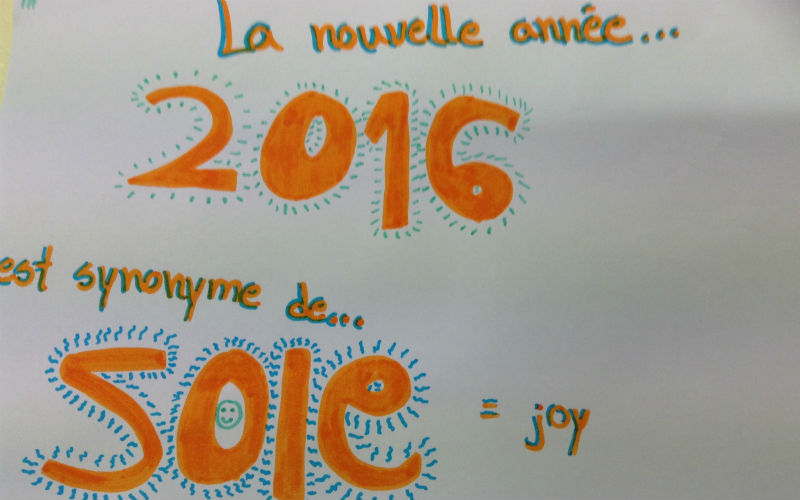 La nouvelle année...
2016
est synonyme de...
SOIe = joy